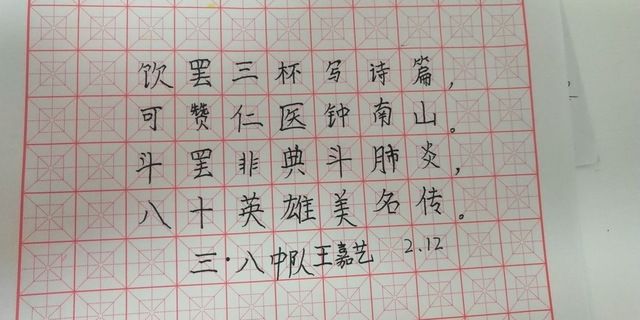 饮罢三杯写诗篇,
可赞仁医钟南山。
斗罢非典斗肺炎,
八十英雄美名传。
三·八中队王嘉艺 2.12